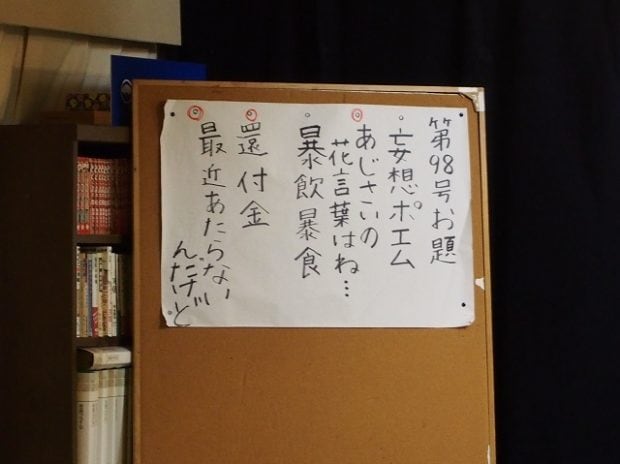 第98号お題
・妄想ポエム
◎あじさいの
花言葉はね…
○暴飲暴食
◎還付金
◎最近あたらない
んだけど